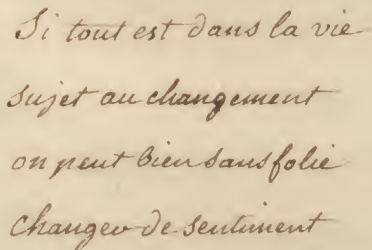 Si tout est dans la vie
sujet au changement
on peut bien sans folie
changer de sentiment